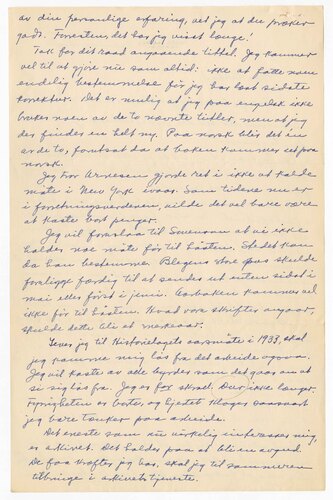 av din personlige erfaring, vet jeg at du præker
godt. Forresten, det har jeg visst længe!
Tak for dit raad angaaende titlel. Jeg kommer
vel til at gjøre nu som altid: ikke at fatte noen
endelig bestemmelse før jeg har læst sidste
korrektur. Det er mulig at jeg paa engelsk ikke
bruker noen av de to nævnte titler, men at jeg
der finder en helt ny. Paa norsk blir det en
av de to, forutsat da at boken kommer ut paa
norsk.
Jeg tror Arnesen gjorde ret i ikke at kalde
møte i New York ivaar. Som tiderne nu er
i forretningsverdenen, vilde det vel bare være
at kaste bort penger.
Jeg vil foreslaa til Swenson at vi ikke
holder noe møte før til høsten. Stedet kan
da han bestemme. Blegens store paa skulde
foreligge færdig til at sendes ut enten sidst i
mai eller først i juni. Aarboken kommer vel
ikke før til høsten. Hvad vore skrifter angaar,
skulde dette bli et merkeaar.
Lever jeg til Historielagets aarsmøte i 1933, skal
jeg komme mig løs fra det arbeide ogsaa.
Jeg vil kaste av alle byrder som det gaar an at
se sig løs fra. Jeg er for skral. Dur ikke længer.
Trygheten er borte, og hjertet klager saasnart
jeg bare tænker paa arbeide.
Det eneste som nu virkelig interesserer mig,
er arkivet. Det holder paa at bli en avgud.
De faa kræfter jeg har, skal jeg til sommeren
tilbringe i arkivets tjeneste.